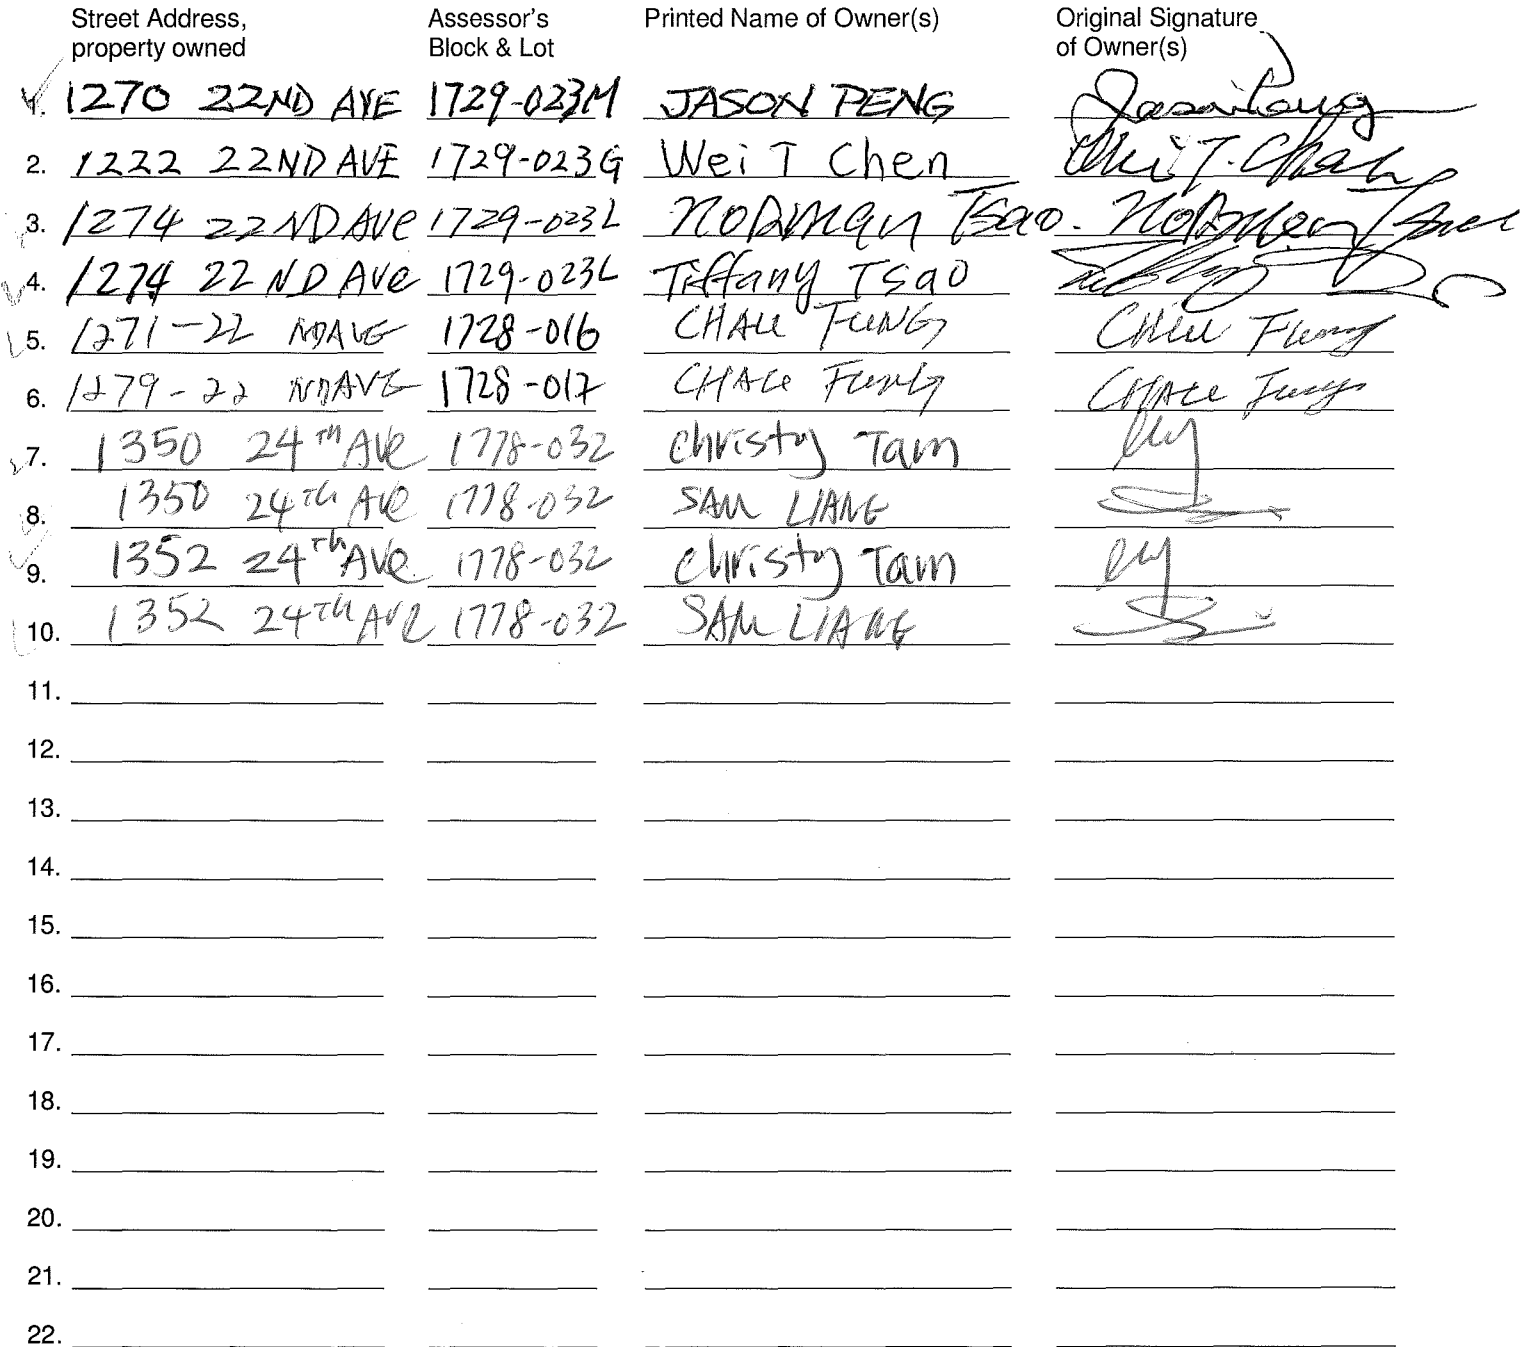 Street Address, property owned Assessor's Block & Lot Printed Name of Owner(s) Original Signature of Owner(s)
1. 1270 22ND AVE 1729-023M JASON PENG
2. 1222 22ND AVE 1729-023G Wei T Chen Wei T. Chen
3. 1274 22ND AVe 1729-023L NORMan Tsao. NORMan Tsao
4. 1274 22ND AVe 1729-023L Tiffany Tsao
5. 1271-22 NDAVE 1728-016 CHAU FUNG Chau Fung
6. 1279-22 NDAVE 1728-017 CHAU FUNG CHAU Fung
7. 1350 24TH AVe 1778-032 Christy Tam
8. 1350 24th AVe 1778-032 SAM LIANG
9. 1352 24th AVe 1778-032 Christy Tam
10. 1352 24TH AVe 1778-032 SAM LIANG
11.
12.
13.
14.
15.
16.
17.
18.
19.
20.
21.
22.